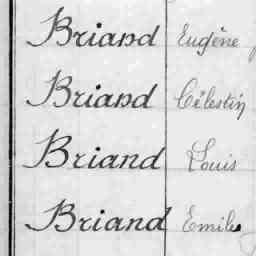 Briand Eugène
Briand Célestin
Briand Louis
Briand Emile